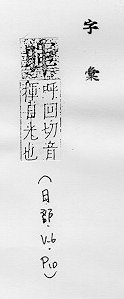 字彙
呼回切音
揮日光也
(日部·V.6·P10)